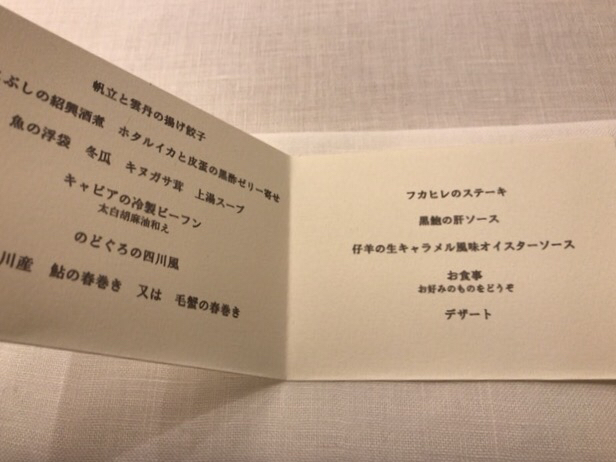 帆立と雲丹の揚げ餃子
ぶしの紹興酒煮 ホタルイカと皮蛋の黒酢ゼリー寄せ
魚の浮袋 冬瓜 キヌガサ茸 上湯スープ
キャビアの冷製ビーフン
太白胡麻油和え
のどぐろの四川風
川産 鮎の春巻き 又は 毛蟹の春巻き
フカヒレのステーキ
黒鮑の肝ソース
仔羊の生キャラメル風味オイスターソース
お食事
お好みのものをどうぞ
デザート